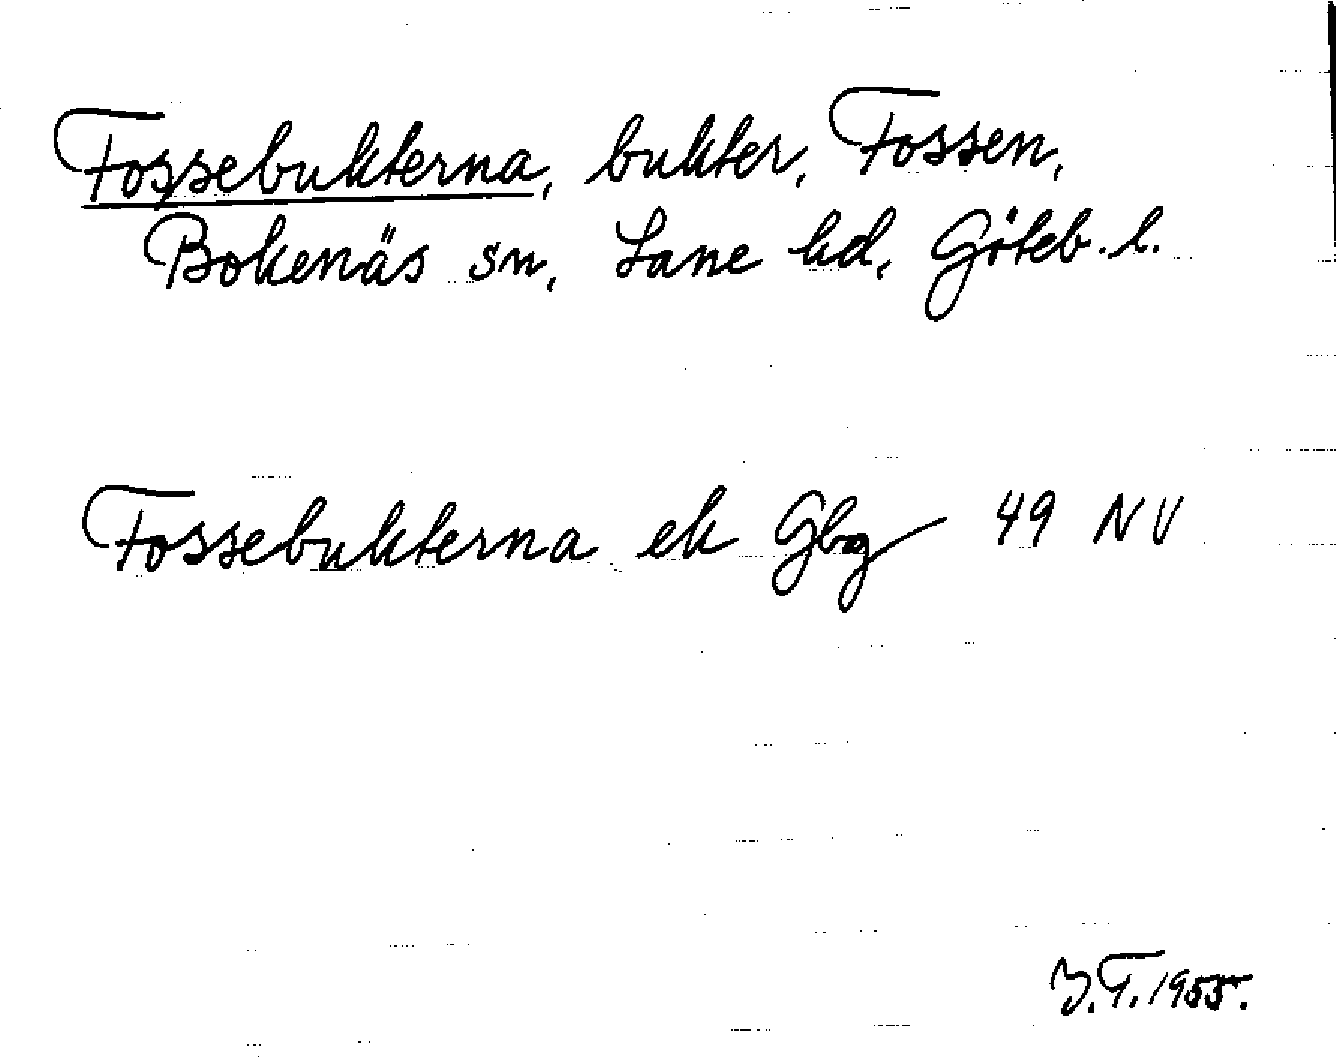 Fossebukterna, bukter, Fossen,
Bokenäs sn, Lane hd, Göteb. l.
Fossebukterna ek Gbg 49 NV
Y.T. 1955.